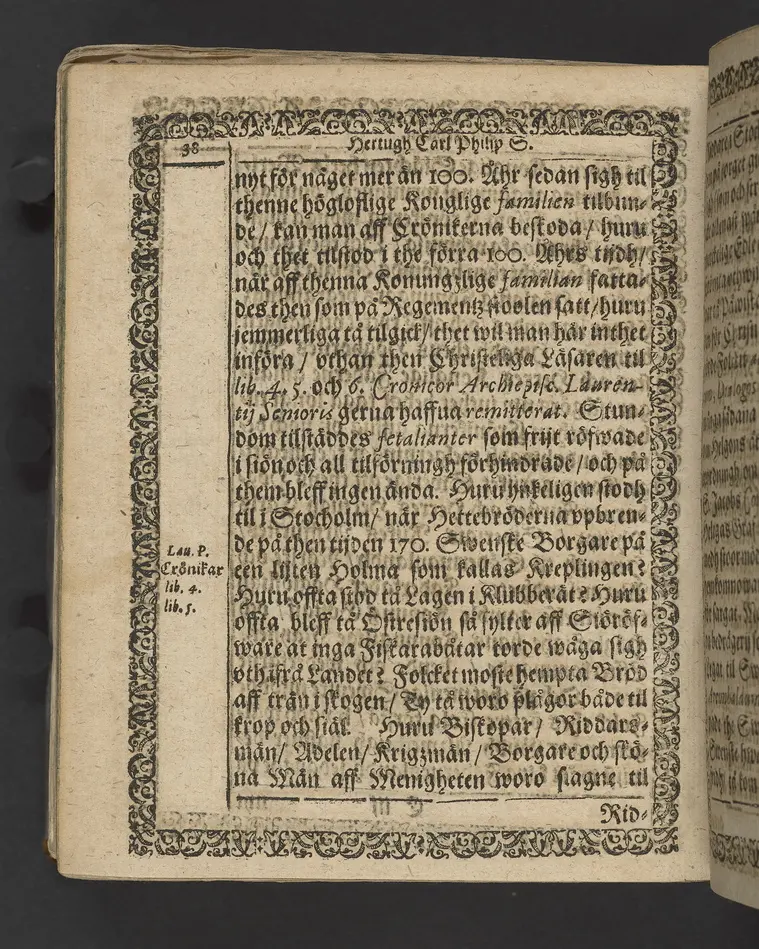 38
Hertugh Carl Philip S.
nyt för någet mer än 100. Åhr sedan sigh til
thenne högloflige Konglige familien tilbun-
de / kan man aff Crönikerna beskoda / huru
och thet tilstod i the förra 100. Åhrs tijdh /
när aff thenna Konungzlige familian fatta-
des then som på Regementz stoolen satt / huru
jemmerliga tå tilgick / thet wil man här inthet
införa / vthan then Christeliga Läsaren til
lib. 4. 5. och 6. Cronicor Archiepisc. Lauren-
tij Senioris gerna haffua remitterat. Stun-
dom tilstäddes fetalianter som frijt röfwade
i siön och all tilförningh förhindrade / och på
them bleff ingen ända. Huru ynkeligen stodh
til i Stocholm / när Hettebröderna vpbren-
de på then tijden 170. Swenske Borgare på
een lijten Holma som kallas Kreplingen?
Huru offta stod tå Lagen i Klubberåt? Huru
offta bleff tå Östresiön så fylter aff Siöröf-
ware at inga Fiskarabåtar torde wåga sigh
vthåfrå Landet? Folcket moste hempta Bröd
aff trän i skogen / Ty tå woro plågor både til
krop och siäl. Huru Biskopar / Riddars-
män / Adelen / Krigzmän / Borgare och skö-
na Män aff Menigheten woro slagne til
Rid-
Lau. P.
Crönikar
lib. 4.
lib. 5.